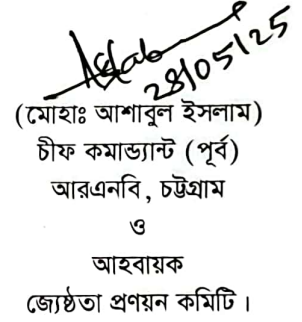 28/05/25
(মোহাঃ আশাবুল ইসলাম)
চীফ কমান্ড্যান্ট (পূর্ব)
আরএনবি, চট্টগ্রাম
ও
আহবায়ক
জ্যেষ্ঠতা প্রণয়ন কমিটি।